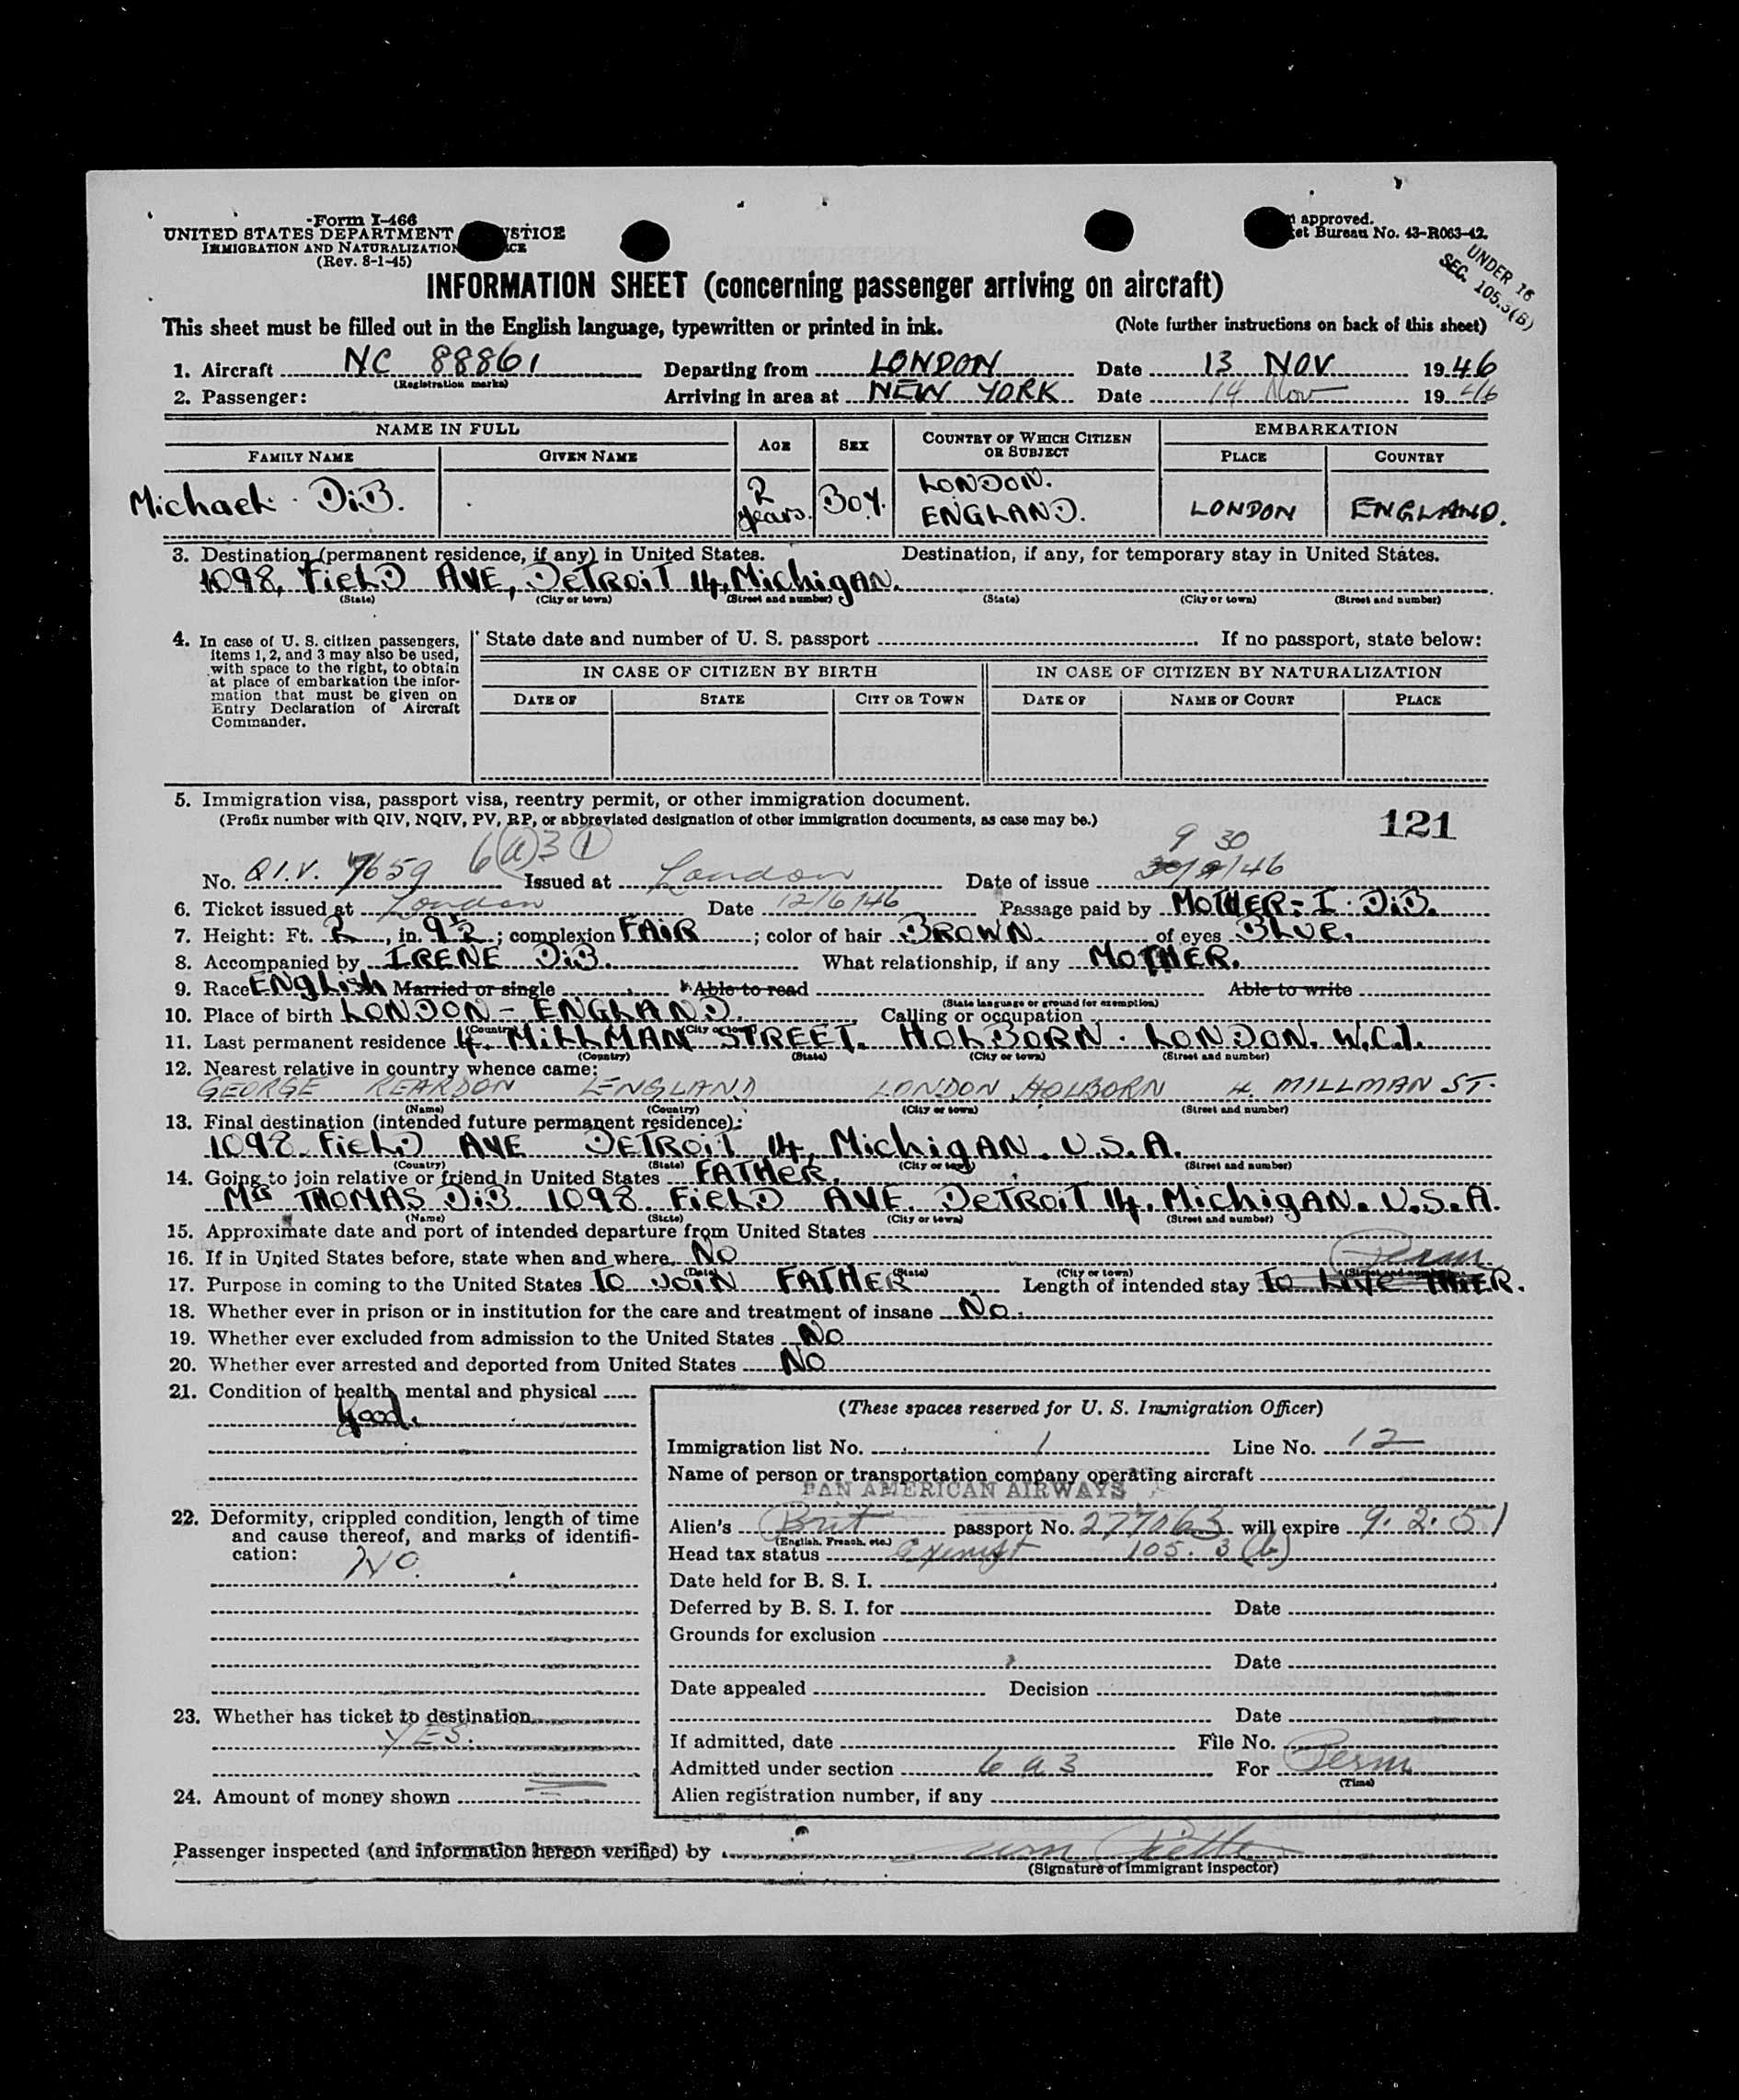 Form I-466
UNITED STATES DEPARTMENT STICE
IMMIGRATION AND NATURALIZATION ICE
(Rev. 8-1-45)
approved.
et Bureau No. 43-R063-42.
UNDER 16
SEC. 105.3(B)
INFORMATION SHEET (concerning passenger arriving on aircraft)
This sheet must be filled out in the English language, typewritten or printed in ink. (Note further instructions on back of this sheet)
1. Aircraft NC 88861 Departing from LONDON Date 13 NOV. 1946
(Registration marks)
2. Passenger: Arriving in area at NEW YORK Date 14 Nov 1946
NAME IN FULL AGE SEX COUNTRY OF WHICH CITIZEN OR SUBJECT EMBARKATION
FAMILY NAME GIVEN NAME PLACE COUNTRY
Michael DiB. 2 years. Boy. LONDON. ENGLAND. LONDON ENGLAND.
3. Destination (permanent residence, if any) in United States. Destination, if any, for temporary stay in United States.
1098, FiELD AVE, DETROiT 14, MichigAN.
(State) (City or town) (Street and number) (State) (City or town) (Street and number)
4. In case of U. S. citizen passengers, items 1, 2, and 3 may also be used, with space to the right, to obtain at place of embarkation the information that must be given on Entry Declaration of Aircraft Commander.
State date and number of U. S. passport If no passport, state below:
IN CASE OF CITIZEN BY BIRTH IN CASE OF CITIZEN BY NATURALIZATION
DATE OF STATE CITY OR TOWN DATE OF NAME OF COURT PLACE
5. Immigration visa, passport visa, reentry permit, or other immigration document.
(Prefix number with QIV, NQIV, PV, RP, or abbreviated designation of other immigration documents, as case may be.)
121
6(a)3 1 9 30
No. Q.I.V. 7659 Issued at London Date of issue /46
6. Ticket issued at London Date 12/6/46 Passage paid by MOTHER - I. DiB.
7. Height: Ft. 2, in. 9½; complexion FAiR; color of hair BROWN. of eyes BLUE.
8. Accompanied by IRENE DiB. What relationship, if any MOTHER.
9. Race ENgLish Married or single Able to read Able to write
(State language or ground for exemption)
10. Place of birth LONDON - ENGLAND. Calling or occupation
(Country) (City or town)
11. Last permanent residence 4. MiLLMAN STREET. HOLBORN. LONDON. W.C.1.
(Country) (State) (City or town) (Street and number)
12. Nearest relative in country whence came:
GEORGE REARDON ENGLAND LONDON HOLBORN 4. MILLMAN ST.
(Name) (Country) (City or town) (Street and number)
13. Final destination (intended future permanent residence):
1098. FiELD AVE DETROiT 14, MichigAN. U.S.A.
(Country) (State) (City or town) (Street and number)
14. Going to join relative or friend in United States FATHER.
MR THOMAS DiB 1098 FiELD AVE. DETROiT 14. MichigAN. U.S.A.
(Name) (State) (City or town) (Street and number)
15. Approximate date and port of intended departure from United States
16. If in United States before, state when and where NO Perm
(Date) (State) (City or town) (Street and number)
17. Purpose in coming to the United States To JOiN FATHER Length of intended stay To LiVE THER.
18. Whether ever in prison or in institution for the care and treatment of insane No.
19. Whether ever excluded from admission to the United States NO
20. Whether ever arrested and deported from United States NO
21. Condition of health, mental and physical
good.
22. Deformity, crippled condition, length of time and cause thereof, and marks of identification:
NO.
23. Whether has ticket to destination
YES.
24. Amount of money shown
(These spaces reserved for U. S. Immigration Officer)
Immigration list No. 1 Line No. 12
Name of person or transportation company operating aircraft
PAN AMERICAN AIRWAYS
Alien's Brit passport No. 277063 will expire 9.2.51
(English, French, etc.)
Head tax status Exempt 105.3(b)
Date held for B. S. I.
Deferred by B. S. I. for Date
Grounds for exclusion
Date
Date appealed Decision
Date
If admitted, date File No.
Admitted under section 6 a 3 For Perm
(Time)
Alien registration number, if any
Passenger inspected (and information hereon verified) by
(Signature of Immigrant Inspector)